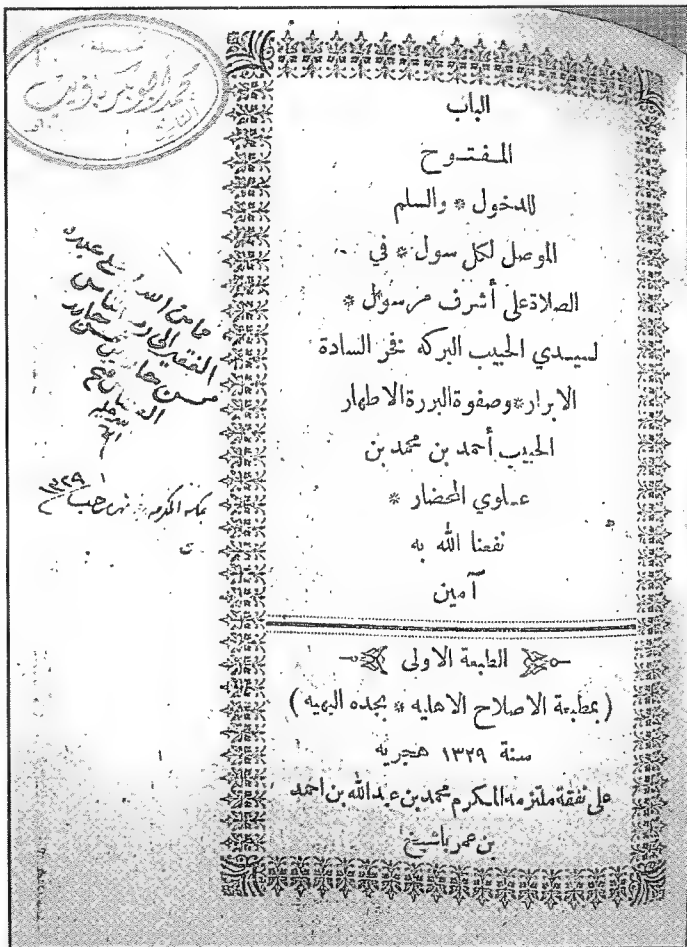 الباب
المفتوح
للدخول * والسلم
الموصل لكل سول * في
الصلاة على أشرف مرسول *
لسيدي الحبيب البركه فخر السادة
الابرار * وصفوة البررة الاطهار
الحبيب أحمد بن محمد بن
علوي المحضار *
نفعنا الله به
آمين
الطبعة الاولى
( بمطبعة الاصلاح الاهليه * بجده البهيه )
سنة ١٣٢٩ هجريه
على نفقة ملتزمه المكرم محمد بن عبدالله بن احمد
بن عمر باشيخ
محمد أبو بكر
من الله عبده
الفقير الى
محسن
بمكة المكرمه
١٣٢٩